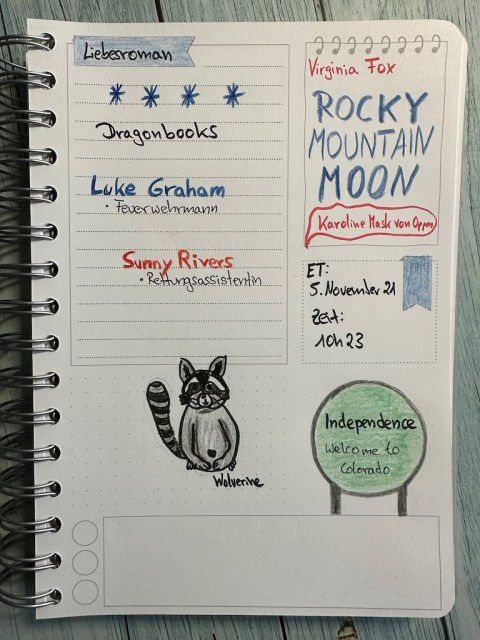 Liebesroman
* * * *
Dragonbooks
Luke Graham
• Feuerwehrmann
Sunny Rivers
• Rettungsassistentin
Virginia Fox
ROCKY
MOUNTAIN
MOON
Karoline Mask von Oppen
ET:
5. November 21
Zeit:
10h 23
Wolverine
Independence
Welcome to
Colorado